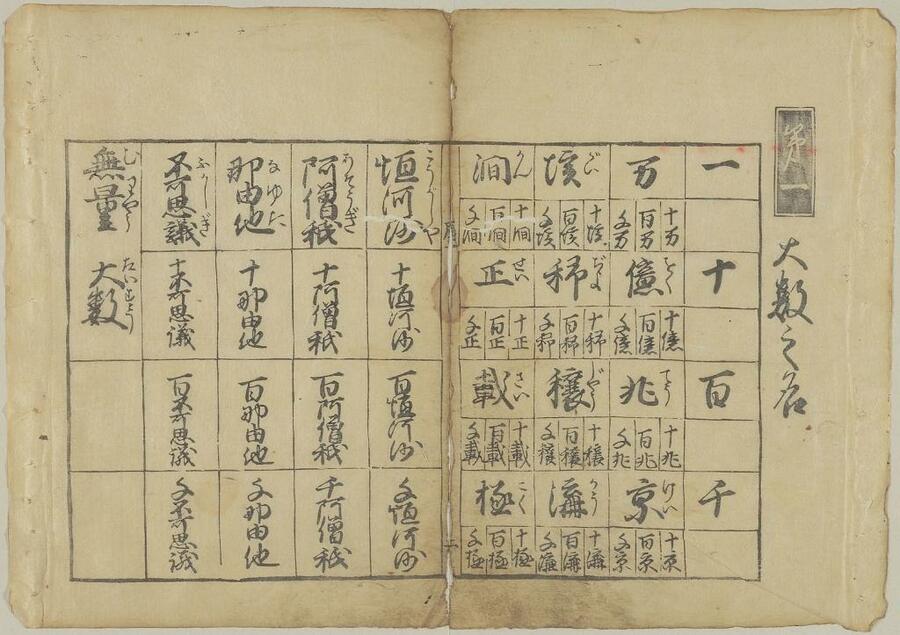 第一
大数之名
一
十
百
千
万
十万
百万
千万
億
おく
十億
百億
千億
兆
てう
十兆
百兆
千兆
京
けい
十京
百京
千京
垓
がい
十垓
百垓
千垓
秭
じよ
十秭
百秭
千秭
穰
じやう
十穰
百穰
千穰
溝
かう
十溝
百溝
千溝
澗
かん
十澗
百澗
千澗
正
せい
十正
百正
千正
載
さい
十載
百載
千載
極
ごく
十極
百極
千極
二
恒河沙
ごうがしや
十恒河沙
百恒河沙
千恒河沙
阿僧祇
あそうぎ
十阿僧祇
百阿僧祇
千阿僧祇
那由他
なゆた
十那由他
百那由他
千那由他
不可思議
ふかしぎ
十不可思議
百不可思議
千不可思議
無量大数
むりやうたいすう